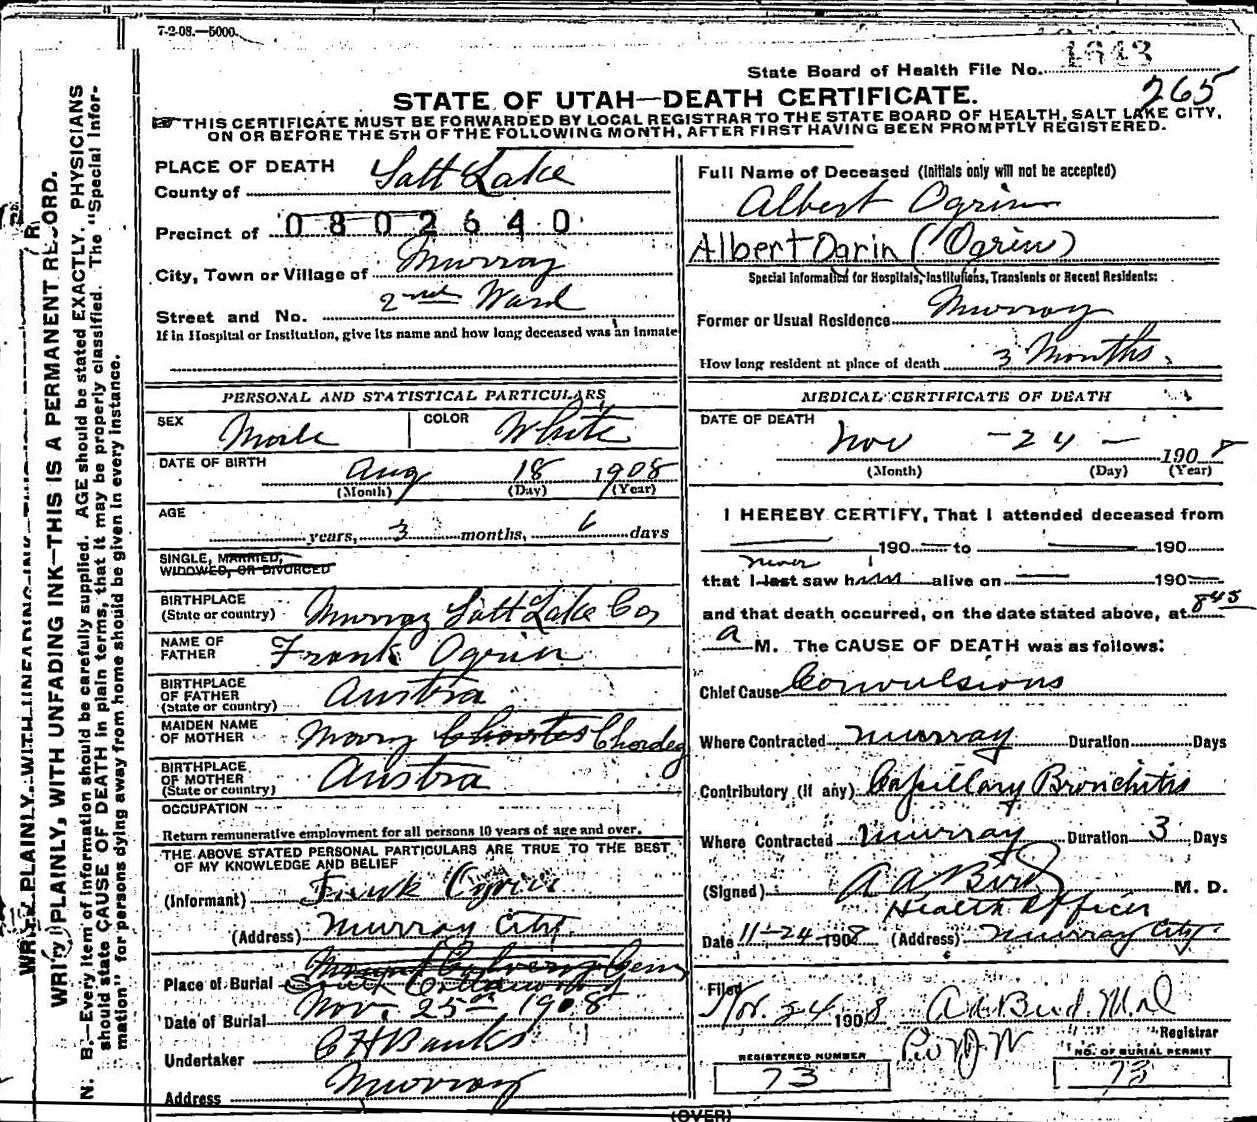 7-2-08.—5000.
State Board of Health File No. 1643
265
STATE OF UTAH—DEATH CERTIFICATE.
THIS CERTIFICATE MUST BE FORWARDED BY LOCAL REGISTRAR TO THE STATE BOARD OF HEALTH, SALT LAKE CITY,
ON OR BEFORE THE 5TH OF THE FOLLOWING MONTH, AFTER FIRST HAVING BEEN PROMPTLY REGISTERED.
WRITE PLAINLY, WITH UNFADING INK—THIS IS A PERMANENT RECORD.
N. B.—Every item of information should be carefully supplied. AGE should be stated EXACTLY. PHYSICIANS
should state CAUSE OF DEATH in plain terms, that it may be properly classified. The "Special Infor-
mation" for persons dying away from home should be given in every instance.
PLACE OF DEATH
County of Salt Lake
Precinct of 0802640
City, Town or Village of Murray
Street and No. 2nd Ward
If in Hospital or Institution, give its name and how long deceased was an inmate
PERSONAL AND STATISTICAL PARTICULARS
SEX Male COLOR White
DATE OF BIRTH Aug 18 1908
(Month) (Day) (Year)
AGE
years, 3 months, 6 days
SINGLE, MARRIED,
WIDOWED, OR DIVORCED
BIRTHPLACE
(State or country) Murray Salt Lake Co,
NAME OF
FATHER Frank Ogrin
BIRTHPLACE
OF FATHER
(State or country) Austra
MAIDEN NAME
OF MOTHER Mary Chordeg
BIRTHPLACE
OF MOTHER
(State or country) Austra
OCCUPATION
Return remunerative employment for all persons 10 years of age and over.
THE ABOVE STATED PERSONAL PARTICULARS ARE TRUE TO THE BEST
OF MY KNOWLEDGE AND BELIEF
(Informant) Frank Ogrin
(Address) Murray City
Mount Calvery Cem
Place of Burial South Cottonwood
Date of Burial Nov. 25th 1908
Undertaker C H Banks
Address Murray
Full Name of Deceased (Initials only will not be accepted)
Albert Ogrin
Albert Ogrin (Ogrin)
Special Information for Hospitals, Institutions, Transients or Recent Residents:
Former or Usual Residence Murray
How long resident at place of death 3 Months.
MEDICAL CERTIFICATE OF DEATH
DATE OF DEATH
Nov - 24 - 1908
(Month) (Day) (Year)
I HEREBY CERTIFY, That I attended deceased from
190 to 190
never
that I last saw h alive on 190
and that death occurred, on the date stated above, at 845
a M. The CAUSE OF DEATH was as follows:
Chief Cause Convulsions
Where Contracted Murray Duration Days
Contributory (if any) Capillary Bronchitis
Where Contracted Murray Duration 3 Days
(Signed) A A Bird M. D.
Health Officer
Date 11-24-1908 (Address) Murray City
Filed
Nov. 24 1908 A A Bird M.D
Registrar
REGISTERED NUMBER
73
NO. OF BURIAL PERMIT
73
(OVER)